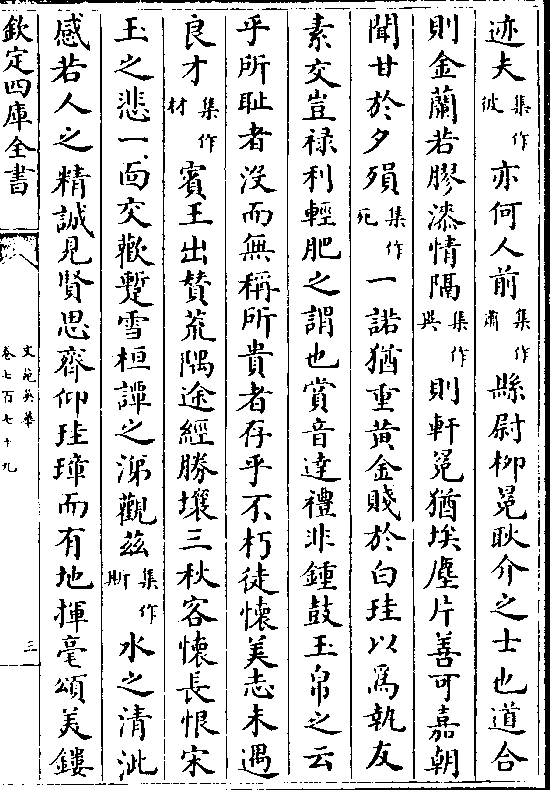 迹夫集作彼亦何人前集作肅縣尉柳冕耿介之士也道合
則金蘭若膠漆情隔集作異則軒冕猶埃塵片善可嘉朝
聞甘於夕殞集作死一諾猶重黄金賤於白珪以爲執友
素交豈禄利輕肥之謂也賞音達禮非鍾鼓玉帛之云
乎所耻者沒而無稱所貴者存乎不朽徒懷美志未遇
良才集作材賓王出贊荒隅途經勝壤三秋客懷長恨宋
玉之悲一面交歡蹔雪桓譚之涕觀兹集作斯水之清泚
感若人之精誠見賢思齊仰珪璋而有地揮毫頌美鏤
欽定四庫全書
文苑英華
卷七百七十九
三